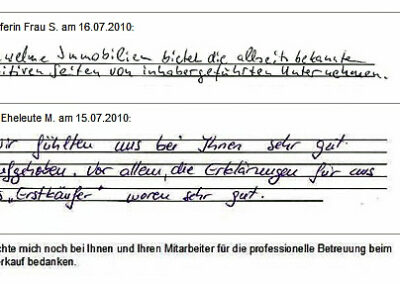 ferin Frau S. am 16.07.2010:
Immobilien bietet die allseits bekannten
itiven Seiten von inhabergeführten Unternehmen.
Eheleute M. am 15.07.2010:
ir fühlten uns bei Ihnen sehr gut
ufgehoben. Vor allem, die Erklärungen für uns
"Erstkäufer" waren sehr gut.
chte mich noch bei Ihnen und Ihren Mitarbeiter für die professionelle Betreuung beim
rkauf bedanken.